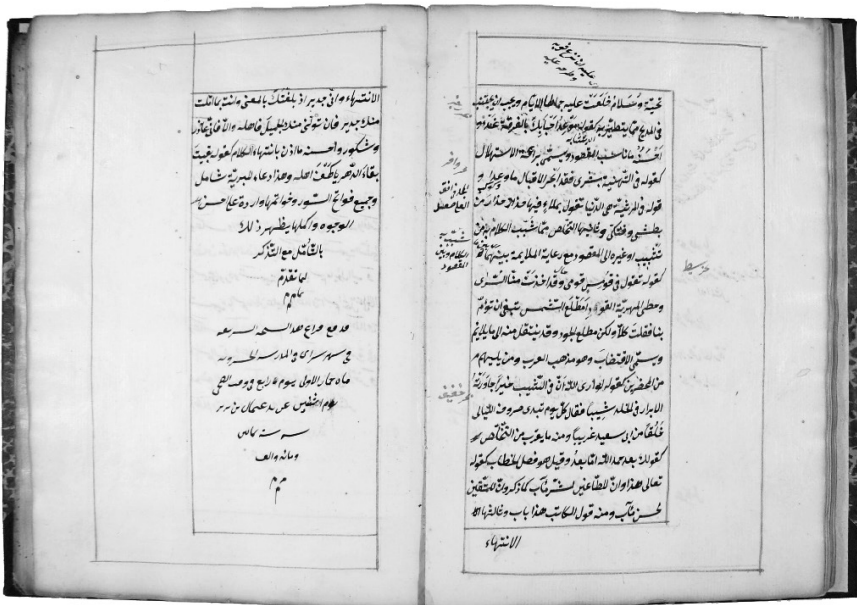 تحية وسلام خلعت عليه جمالها الايام ويجب ان يجتنب
في المديح مما يتطير به كقوله موعد احبابك بالفرقة غد و
احسنه ما ناسب المقصود ويسمى براعة الاستهلال
كقوله في التهنية بشرى فقد انجز الاقبال ما وعدا و
قوله في المرثية هي الدنيا تقول بملء فيها حذار حذار من
بطشى وفتكى وثانيها التخلص مما شبب الكلام به من
تشبيب او غيره الى المقصود مع رعاية الملايمة بينهما
كقوله تقول في قومس قومى وقد اخذت منا السرى
وخطى المهرية القود امطلع الشمس تبغى ان تؤم
بنا فقلت كلا ولكن مطلع الجود وقد ينتقل منه الى ما لا يلائم
ويسمى الاقتضاب وهو مذهب العرب ومن يليهم
من المخضرمين كقوله لو رأى الله ان في الشيب خيرا جاورته
الابرار في الخلد شيبا فقال كل يوم تبدى صروف الليالى
خلقا من ابى سعيد غريبا ومنه ما يقرب من التخلص
كقولك بعد حمد الله اما بعد وقيل هو فصل الخطاب كقوله
تعالى هذا وان للطاغين لشر مآب كما ذكر وان للمتقين
لحسن مآب ومنه قول الكاتب هذا باب وثالثها
الانتهاء
الانتهاء وانى جدير اذ بلغتك بالمنى وانت بما املت
منك جدير فان تولنى منك الجميل فاهله والا فانى عاذر
وشكور واحسنه ما اذن بانتهاء الكلام كقوله بقيت
بقاء الدهر يا كهف اهله وهذا دعاء للبرية شامل
وجميع فواتح السور وخواتمها واردة على احسن
الوجوه واكملها يظهر ذلك
بالتأمل مع التذكر
لما تقدم
تم م م
قد وقع فراغ هذه النسخة الشريفة
في شهر سراى في المدرسة
ماه جمادى الاولى يوم رابع في وقت الضحى
يوم اثنين عن يد عثمان بن
سنه ثمان
ومائة والف
م م